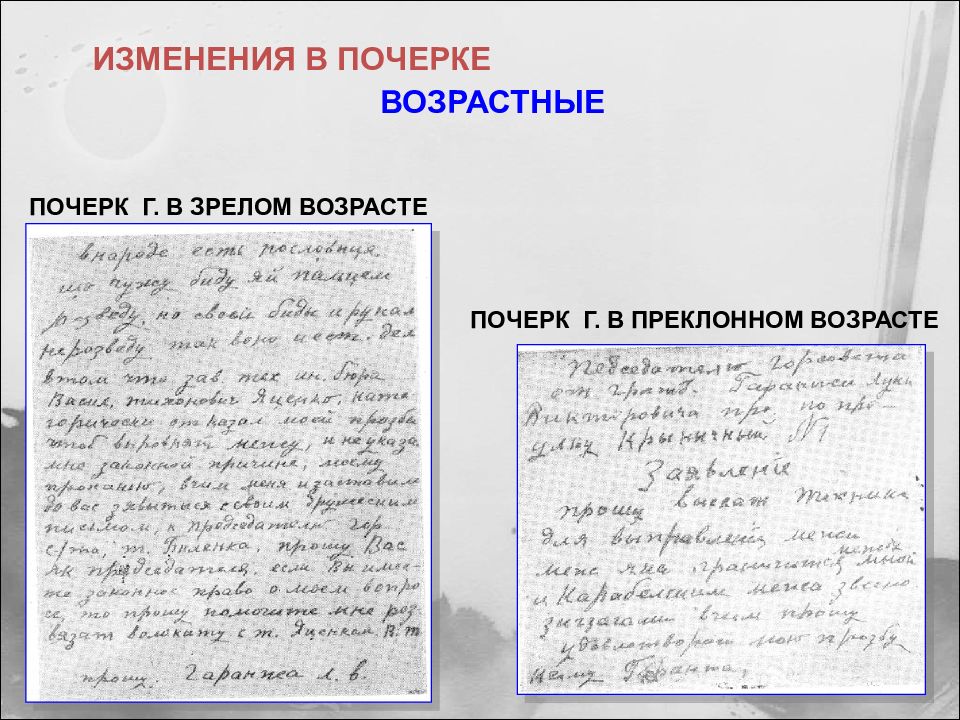 ИЗМЕНЕНИЯ В ПОЧЕРКЕ
ВОЗРАСТНЫЕ
ПОЧЕРК Г. В ЗРЕЛОМ ВОЗРАСТЕ
внароде есть пословиця,
що чужу биду яй пальцем
розведу, но своей биды и рукам
нерозведу так воно и ест. дел
втом что зав. тех ин. бюра
Васил. Тихонович Яценко, кате
горически отказал моей прозбы
чтоб выровнят межу, и неуказа
мне законной причине, моему
проханию, вчим меня изаставил
до вас явыться с своим дружеским
письмом, к председателю гор
с/та, т. Биленка, прошу Вас
як председателя, если Вы имее-
те законное право о моем вопро
се, то прошу помогите мне роз
вязат волокиту с т. Яценком В. Т
прошу. Гаранжа Л. В.
ПОЧЕРК Г. В ПРЕКЛОННОМ ВОЗРАСТЕ
Педседателю горсовета
от граж. Гаранжи Луки
Викторовича про. по про-
улку Крыничный №1
Заявление
прошу выслат техника
для выправлений межи
между
межа яка граничится мной
и Карабельским межа звезно
зигзагами вчем прошу
удовлетворит мою прозбу
Гаранжа,